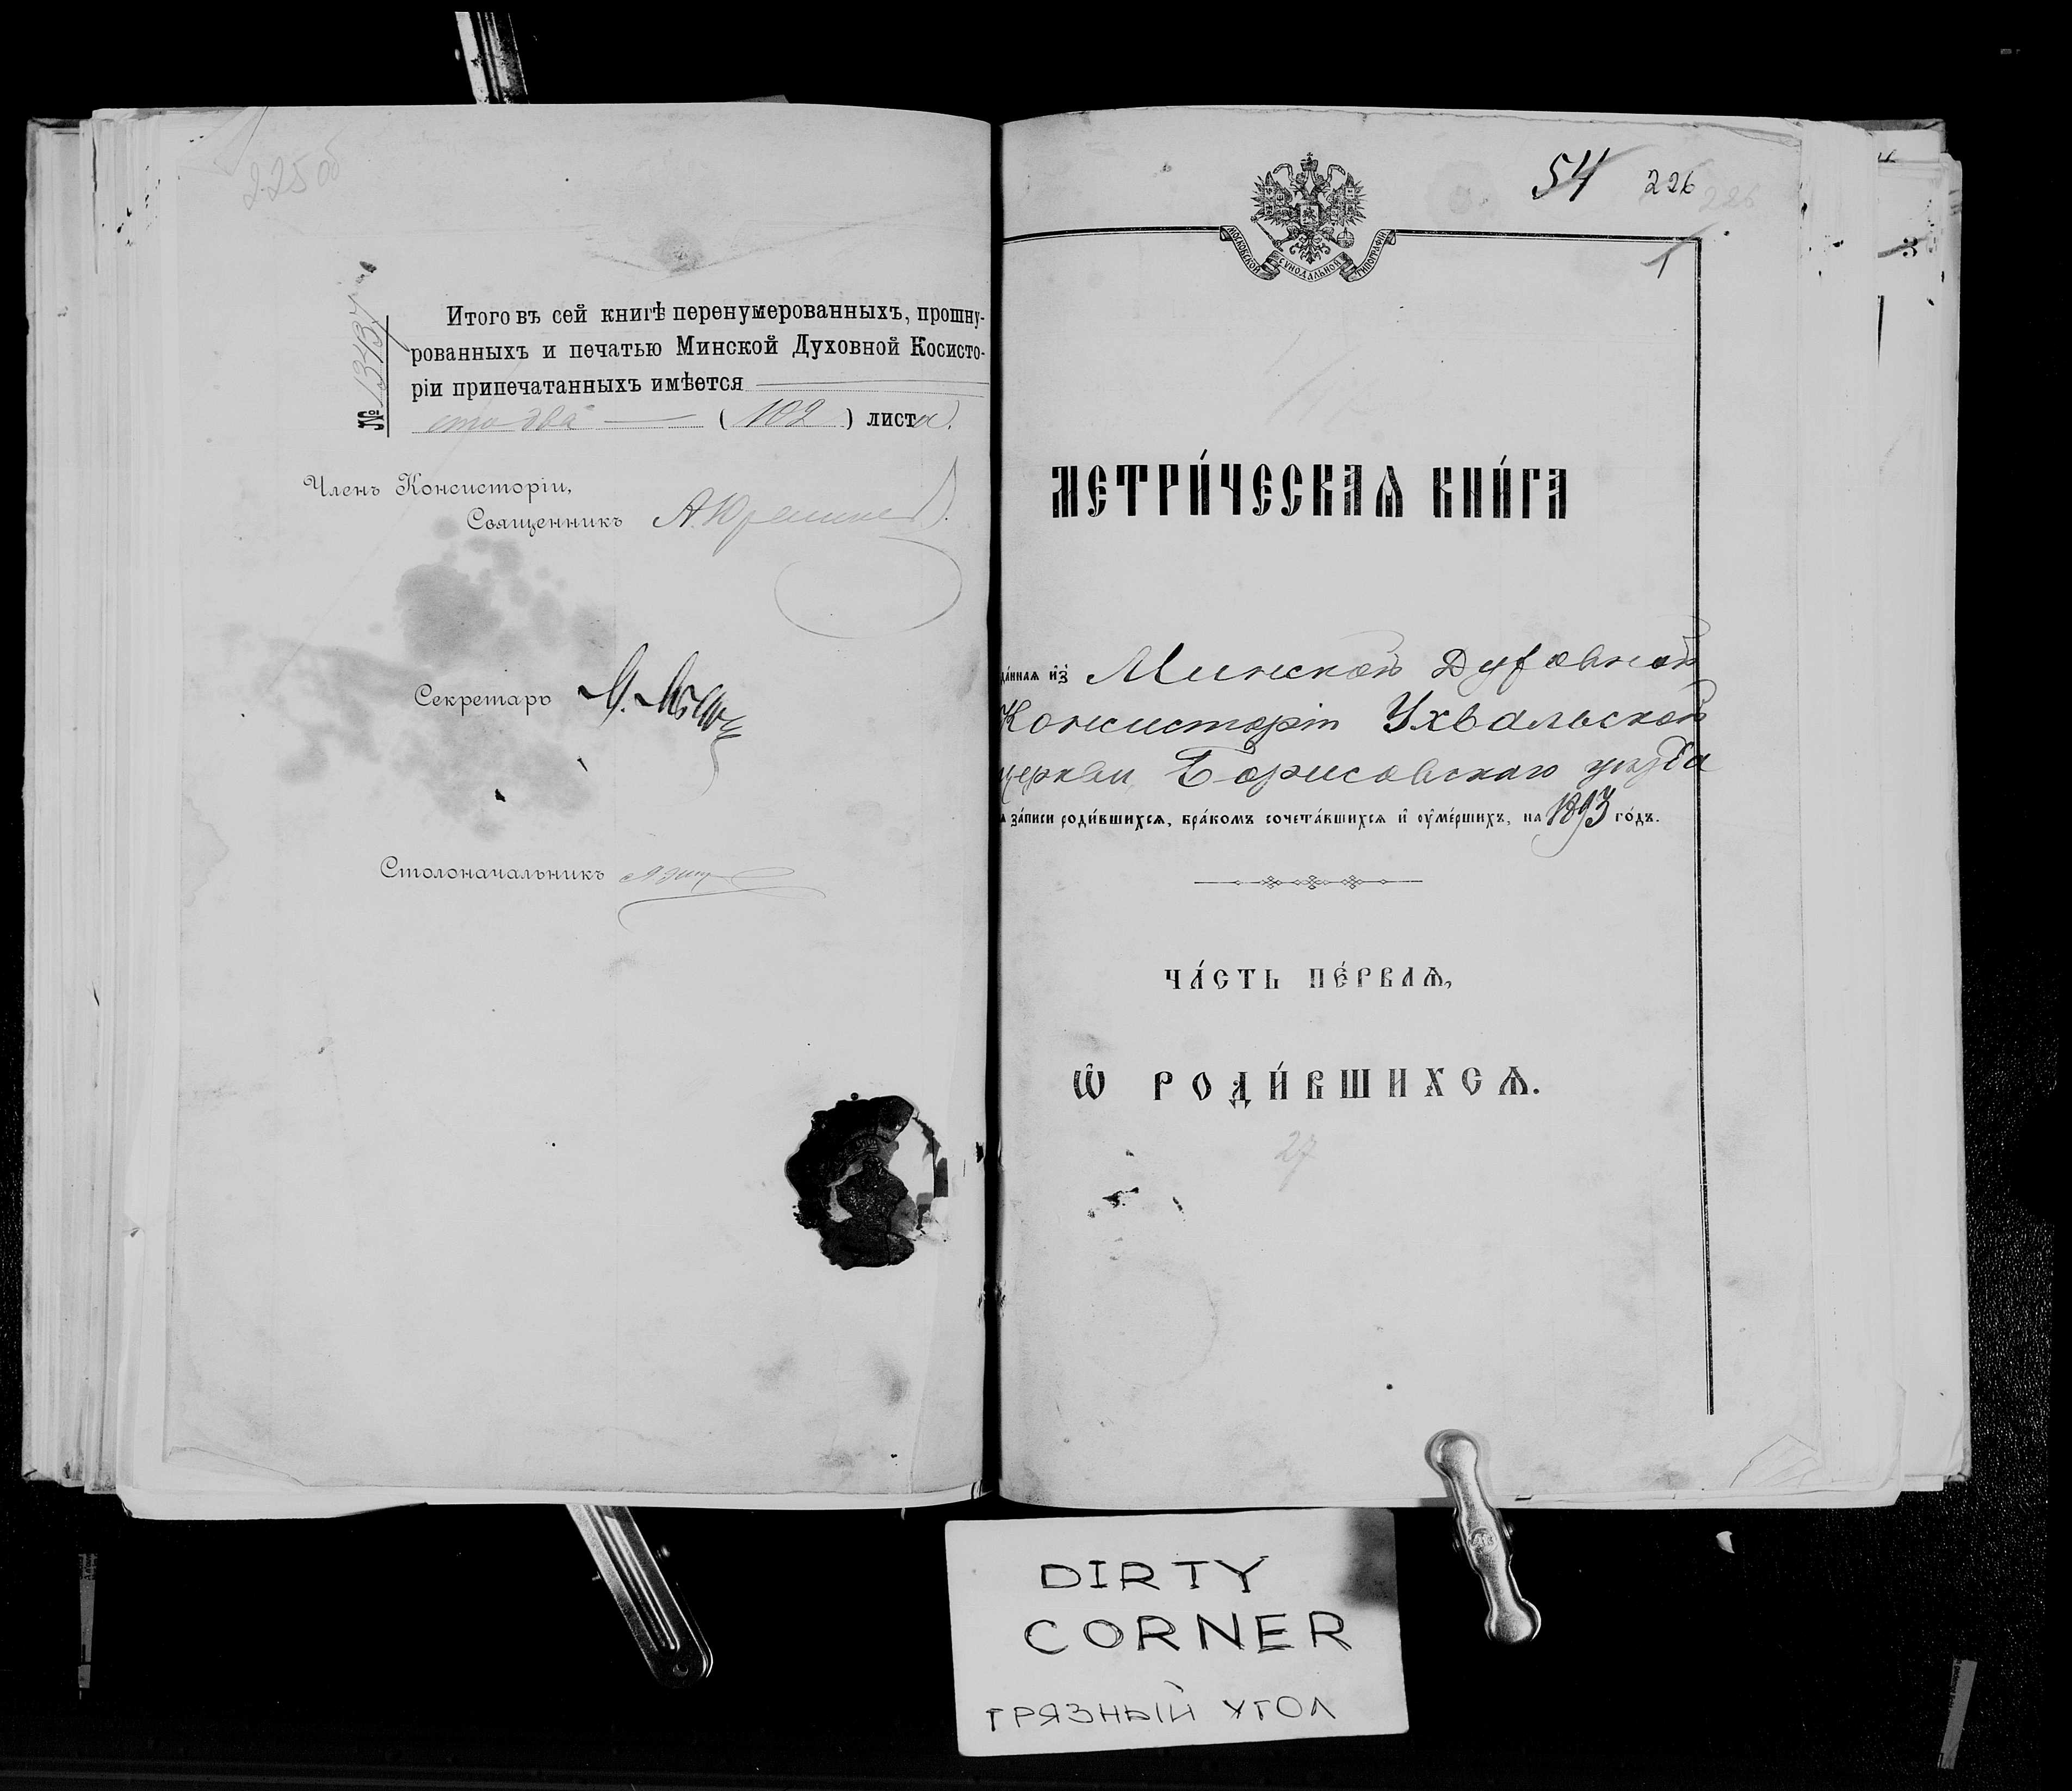 225 об
№ 13437
Итого въ сей книгѣ перенумерованныхъ, прошну-
рованныхъ и печатью Минской Духовной Косисто-
ріи припечатанныхъ имѣется
сто два (102) листа.
Членъ Консисторіи,
Священникъ А.
Секретарь
Столоначальникъ
54 226 226
1
МОСКОВСКОЙ СѴНОДАЛЬНОЙ ТИПОГРАФІИ
МЕТРИ́ЧЕСКАѦ КНИ́ГА
да́ннаѧ и҆з̾ Минской Духовной
Консисторіи Ухвальской
церкви, Борисовскаго уѣзда
за́писи роди́вшихсѧ, бра́комъ сочета́вшихсѧ и҆ ᲂу҆ме́ршихъ, на 1893 го́дъ.
ЧА́СТЬ ПЕ́РВАѦ,
Ѽ РОДИ́ВШИХСѦ.
27
3
DIRTY
CORNER
ГРЯЗНЫЙ УГОЛ